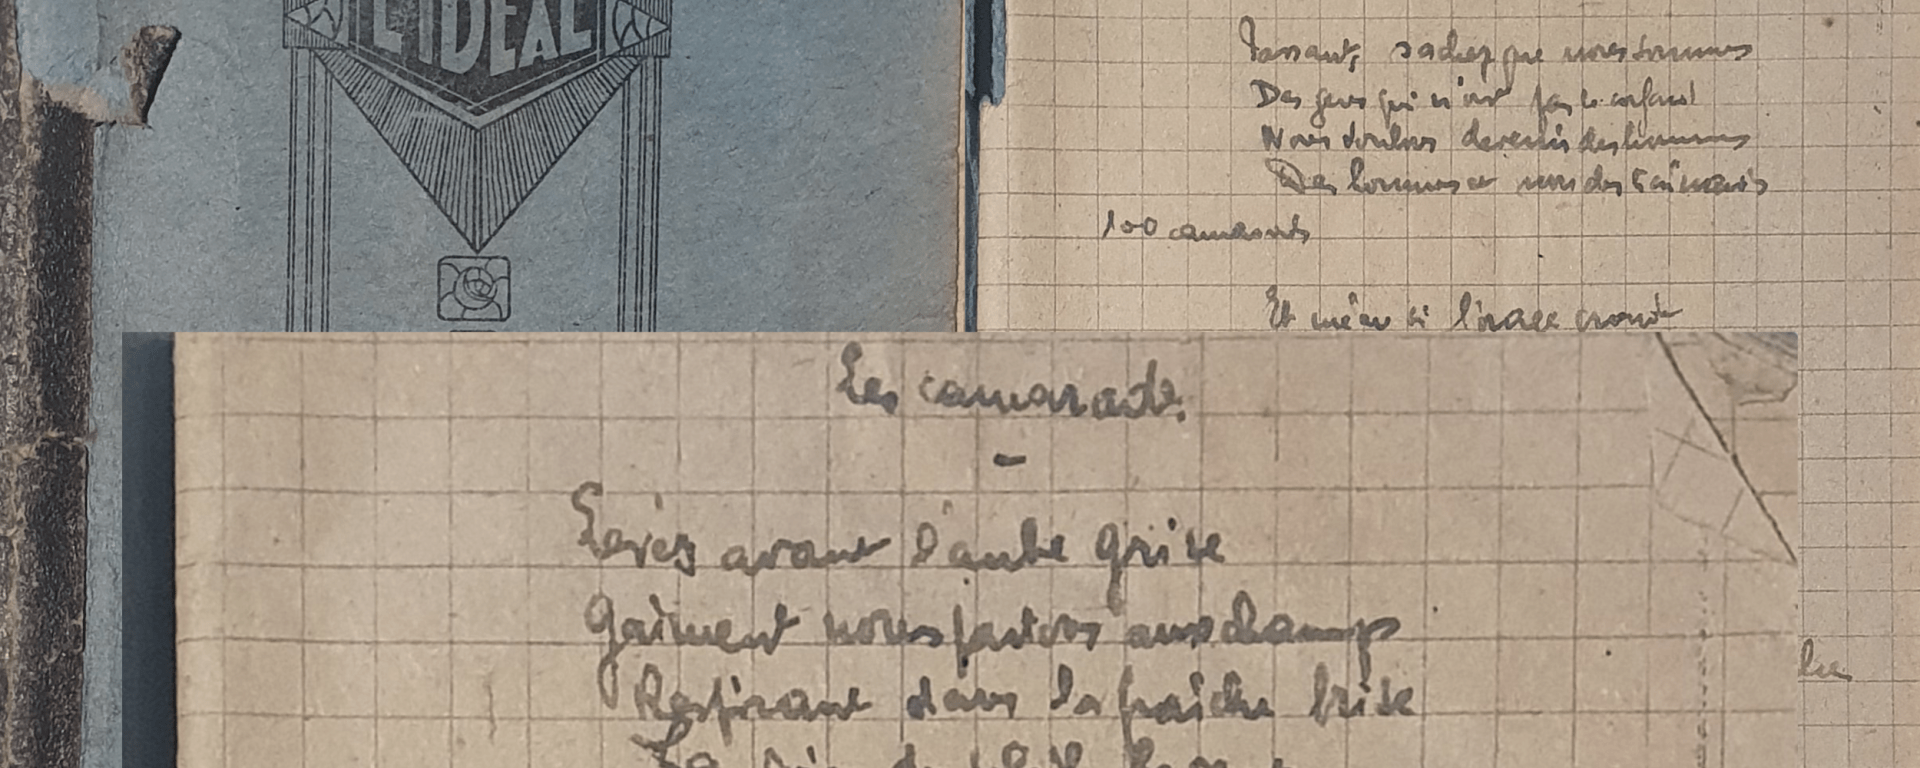 L'IDÉAL
Passant, sachez que nous sommes
Des gens qui n'ont pas le cafard
Nous voulons devenir des hommes
Des hommes et non des
100 camarades
Et même si l'orage gronde
Les camarades.
-
Levés avant l'aube grise
Gaiment nous partons aux champs
Respirant dans la fraîche brise